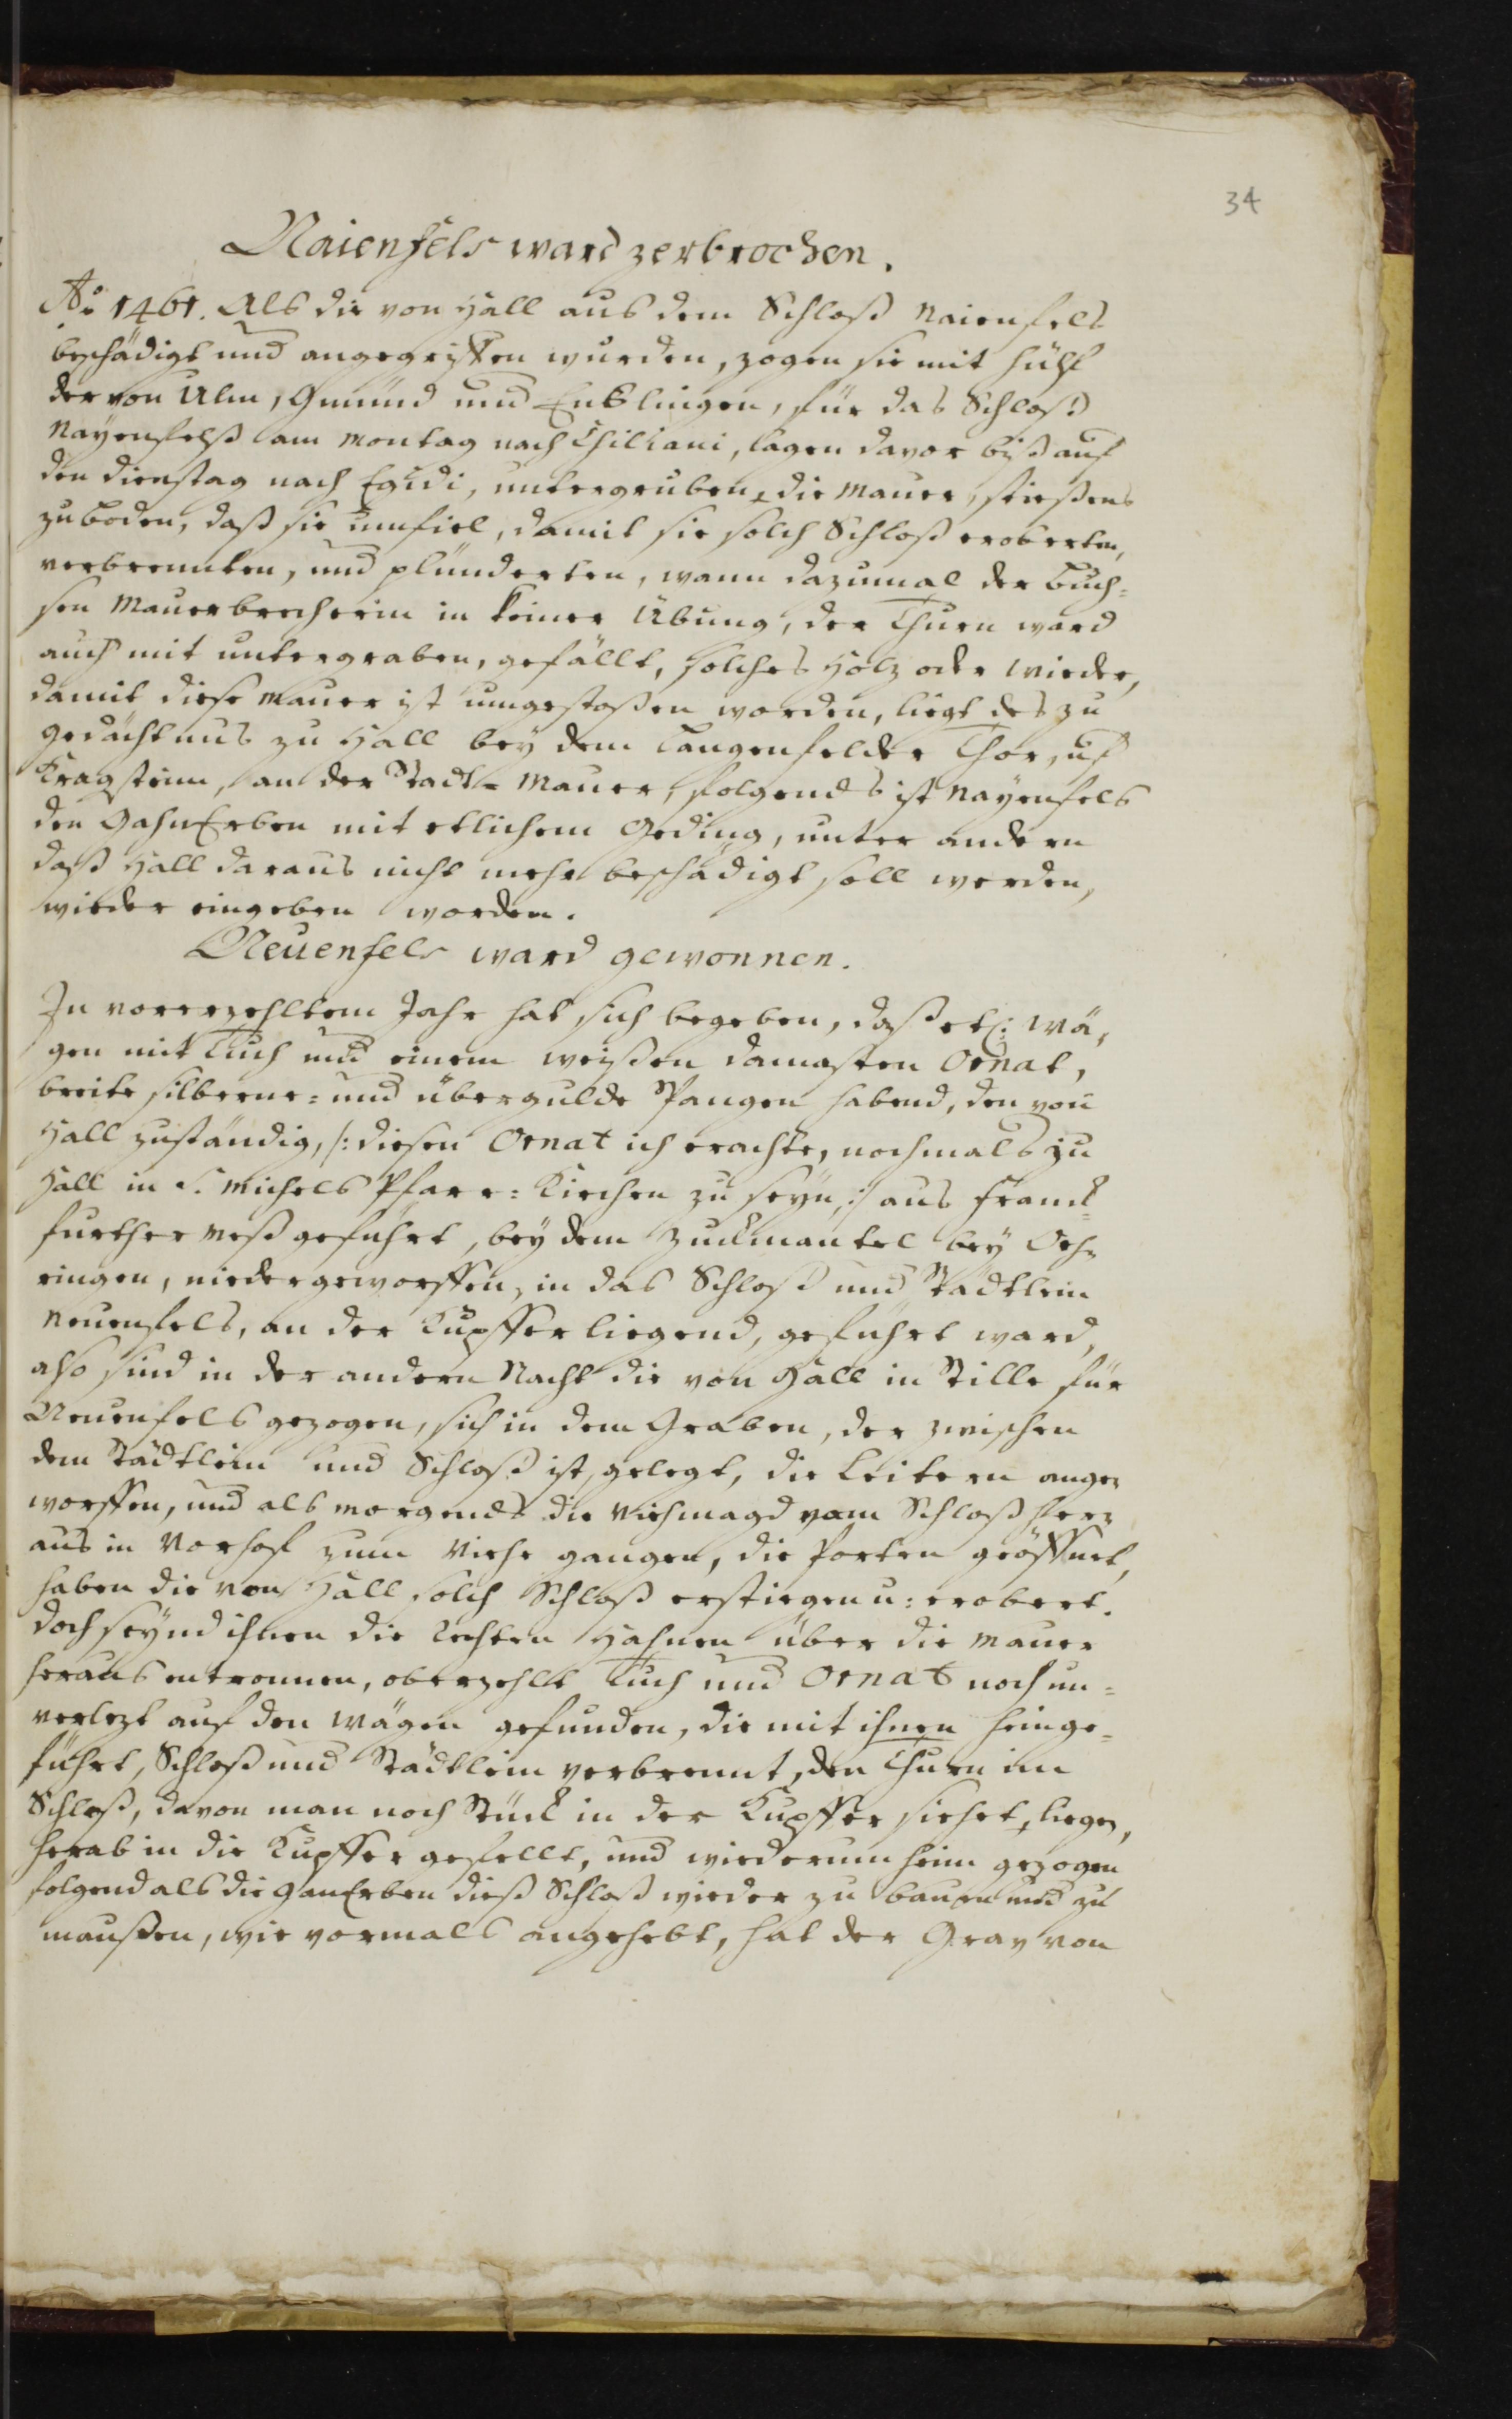 34
Naienfels ward zerbrochen.
Ao 1461. Als die von Hall aus dem Schloß Naienfels
beschädigt und angegriffen wurden, zogen sie mit hülf
der von Ulm, Gmünd und Enßlingen, für das Schloß
Nayenfelß am Montag nach Chiliani, lagen davor biß auf
den dienstag nach Egidi, untergruben die Mauer, stießens
zuboden, daß sie umfiel, damit sie solch Schloß eroberten,
verbrennten, und plünderten, wann dazumal der Buch=
sen Mauerbrecherin in keiner Übung, der Thurn ward
auch mit untergraben, gefällt, solches Holz oder wieder,
damit diese Mauer ist umgestoßen worden, liegt des zu
gedächtnus zu Hall bey dem Langenfelder Thor, uf
Kragstein, an der Stadt=Mauer, folgends ist Nayenfels
den GahnErben mit etlichem Geding, unter andern
daß Hall daraus nicht mehr beschädigt soll werden,
wieder eingeben worden.
Neuenfels ward gewonnen.
In vorerzehltem Jahr hat sich begeben, daß etl: Wä,
gen mit Tuch und einem weißen damasten Ornat,
breite silberne= und übergulde Spangen habend, den von
Hall zuständig, /: diesen Ornat ich erachte, nochmals zu
Hall in S. Michels Pfarr=Kirchen zu seyn, :/ aus Franck=
further Meß geführt, bey dem Zuckmantel bey Oeh=
ringen, niedergeworffen, in das Schloß und Städtlein
Neuenfels, an der Kupffer liegend, geführt ward,
also sind in der andern Nacht die von Hall in Stille für
Neuenfels gezogen, sich in dem Graben, der zwischen
dem Städtlein und Schloß ist, gelegt, die Leitern ange=
worffen, und als morgends die Viehmagd vom Schloß her=
aus in Vorhof zum Viehe gangen, die Porten geöffnet,
haben die von Hall solch Schloß erstiegen u: erobert.
doch seynd ihnen die rechten Hahnen über die Mauer
heraus entronnen, oberzehlt Tuch und Ornat noch un=
verlezt auf den Wägen gefunden, die mit ihnen heimge=
führt, Schloß und Städtlein verbrennt, den Thurn im
Schloß, davon man noch Stück in der Kupffer siehet, liegen,
herab in die Kupffer gefellt, und wiederum heim gezogen
folgend als die GanErben dieß Schloß wieder zu bauen und zu
maußen, wie vormals angehebt, hat der Grav von